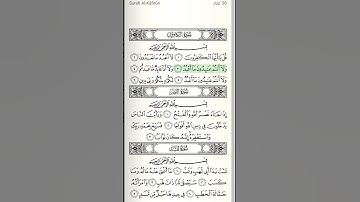 Surah Al-Kāfirūn Juz 30
سُورَةُ الكَافِرُونَ
بِسْمِ اللَّهِ الرَّحْمَٰنِ الرَّحِيمِ
قُلْ يَا أَيُّهَا الْكَافِرُونَ ١ لَا أَعْبُدُ مَا تَعْبُدُونَ ٢
وَلَا أَنتُمْ عَابِدُونَ مَا أَعْبُدُ ٣ وَلَا أَنَا عَابِدٌ مَّا عَبَدتُّمْ ٤
وَلَا أَنتُمْ عَابِدُونَ مَا أَعْبُدُ ٥ لَكُمْ دِينُكُمْ وَلِيَ دِينِ ٦
سُورَةُ النَّصْرِ
بِسْمِ اللَّهِ الرَّحْمَٰنِ الرَّحِيمِ
إِذَا جَاءَ نَصْرُ اللَّهِ وَالْفَتْحُ ١ وَرَأَيْتَ النَّاسَ
يَدْخُلُونَ فِي دِينِ اللَّهِ أَفْوَاجًا ٢ فَسَبِّحْ بِحَمْدِ رَبِّكَ
وَاسْتَغْفِرْهُ إِنَّهُ كَانَ تَوَّابًا ٣
سُورَةُ المَسَدِ
بِسْمِ اللَّهِ الرَّحْمَٰنِ الرَّحِيمِ
تَبَّتْ يَدَا أَبِي لَهَبٍ وَتَبَّ ١ مَا أَغْنَىٰ عَنْهُ مَالُهُ وَمَا
كَسَبَ ٢ سَيَصْلَىٰ نَارًا ذَاتَ لَهَبٍ ٣ وَامْرَأَتُهُ
حَمَّالَةَ الْحَطَبِ ٤ فِي جِيدِهَا حَبْلٌ مِّن مَّسَدٍ ٥